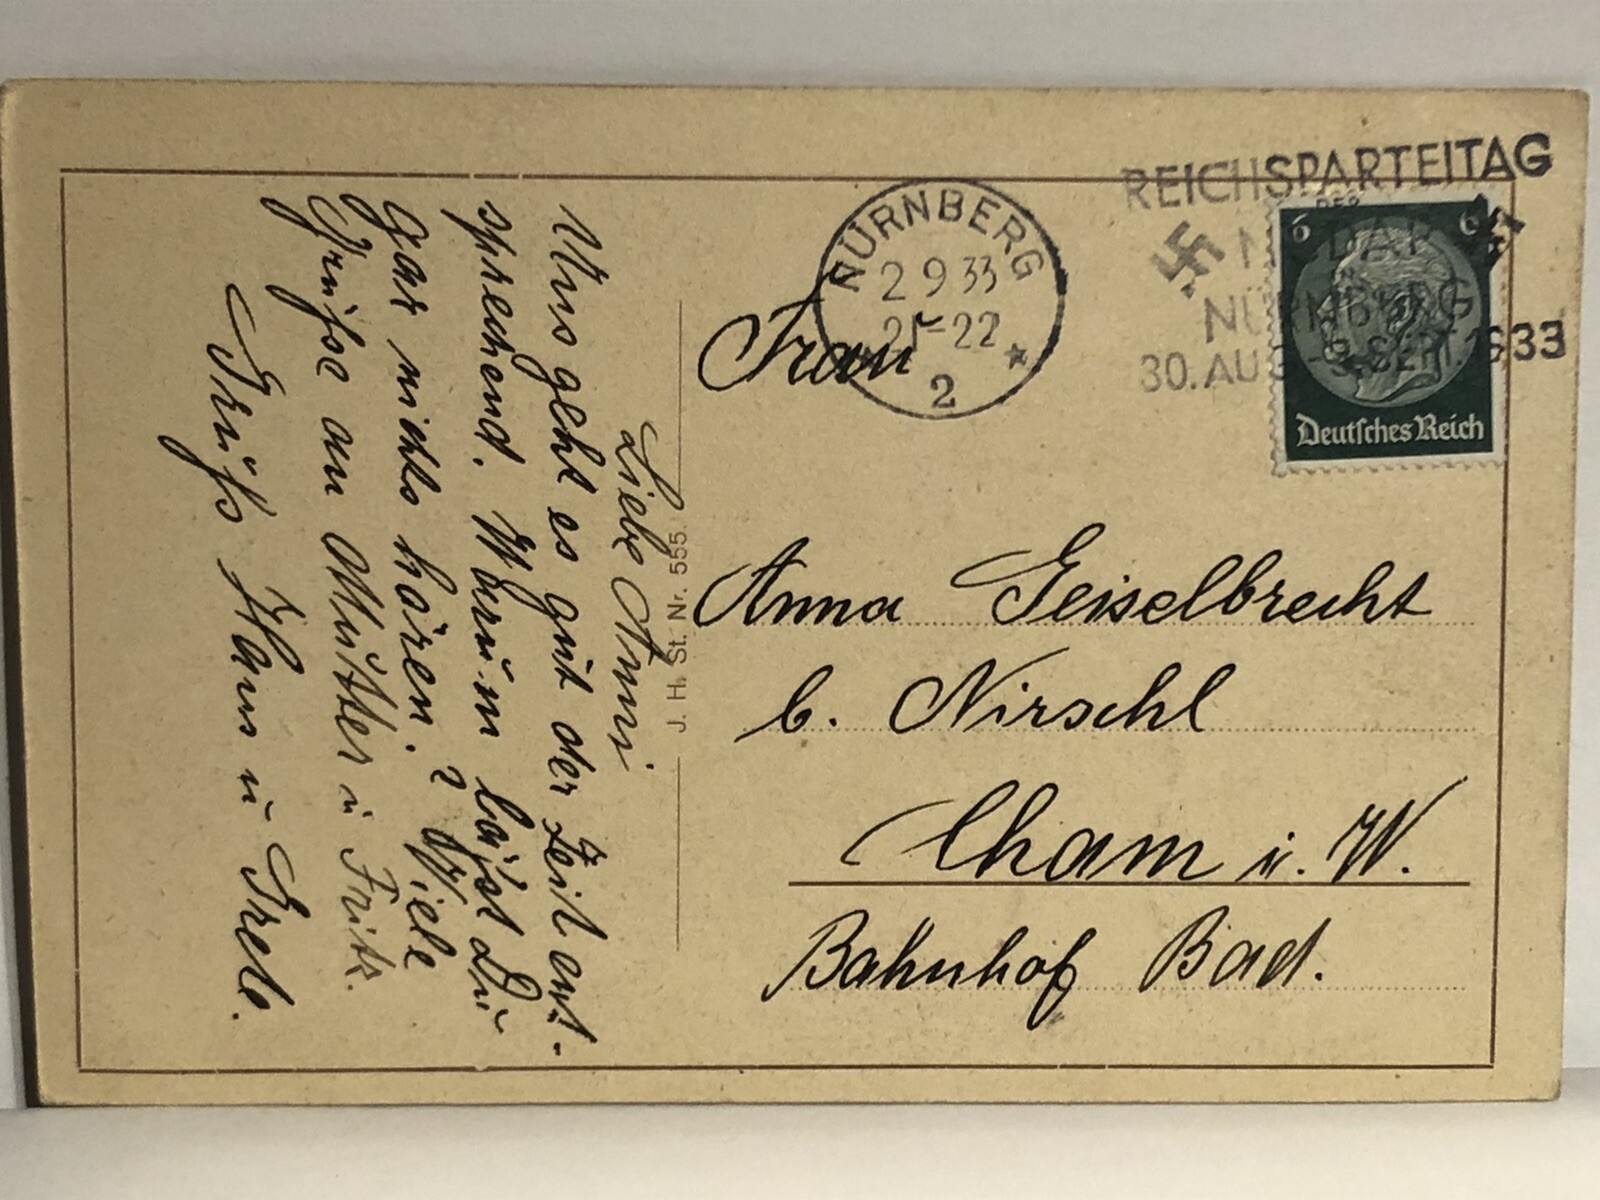 Liebe Anni
Uns geht es gut der Zeit ent-
sprechend. Warum läßt Du
gar nichts hören? Viele
Grüße an Mutter u Fritz.
Gruß Hans u Gretl.
J. H. St. Nr. 555.
NÜRNBERG
2 9 33
21-22
2
REICHSPARTEITAG
DER
NSDAP
IN
NÜRNBERG
30. AUG.-3. SEPT. 1933
6 6
Deutsches Reich
Frau
Anna Geiselbrecht
b. Nirschl
Cham i. W.
Bahnhof Bad.